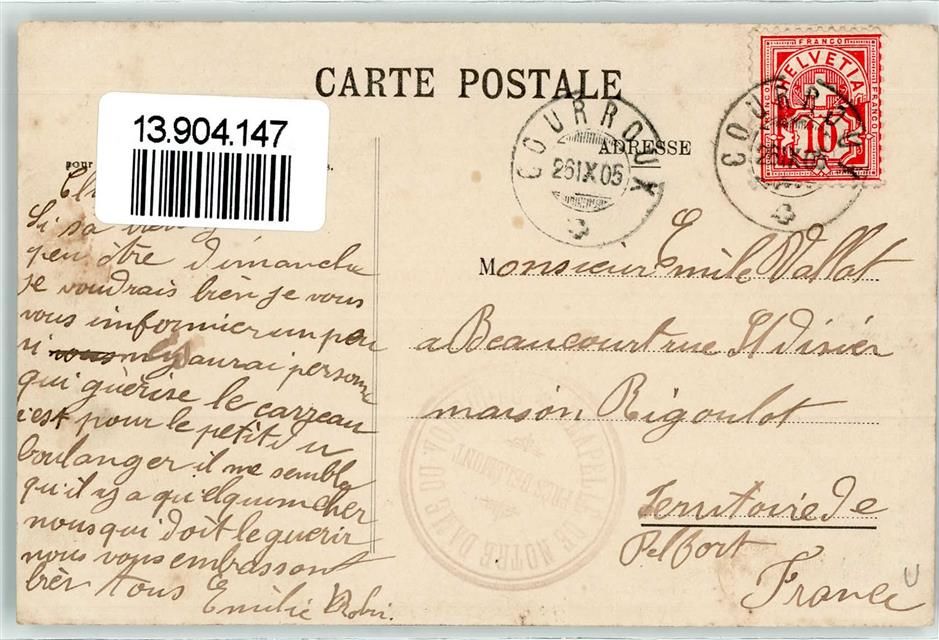 CARTE POSTALE
13.904.147
pour
ADRESSE
FRANCO
HELVETIA
FRANCO
10
COURROUX
26 IX 05
COURROUX
26 IX 05
Si sa
peu être dimanche
je voudrais bien je vous
vous informier un peu
si n'y aurai personne
qui guérise le carreau
c'est pour le petit du
boulanger il me semble
qu'il y a quelqu'un cher
nous qui doit le guérir
nous vous embrassont
bèr tous Emilie
Monsieur Emile Vallat
a Beaucourt rue St Disier
maison Rigoulot
Territoire de
Belfort
France
CHAPELLE DE NOTRE DAME DU VOR
PRES DELÉMONT
U